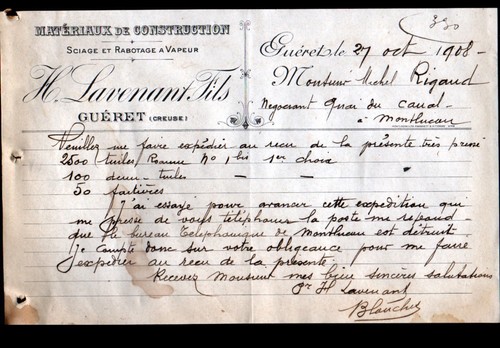 330
MATÉRIAUX DE CONSTRUCTION
SCIAGE ET RABOTAGE A VAPEUR
H. Lavenant Fils
GUÉRET (CREUSE)
Guéret, le 27 oct 1908 -
Monsieur Michel Rigaud
Negociant Quai du Canal -
à Montlucon
Veuillez me faire expédier au recu de la présente très pressé
2500 tuiles, Roanne No 1 bis 1er choix
100 demi-tuiles — —
50 faitières
J'ai essayé pour avancer cette expedition qui
me presse de vous telephoner la poste me repond
que le bureau Telephonique de Montlucon est détruit
Je compte donc sur votre obligeance pour me faire
expédier au recu de la présente
Recevez Monsieur mes bien sincères salutations
Pr H Lavenant